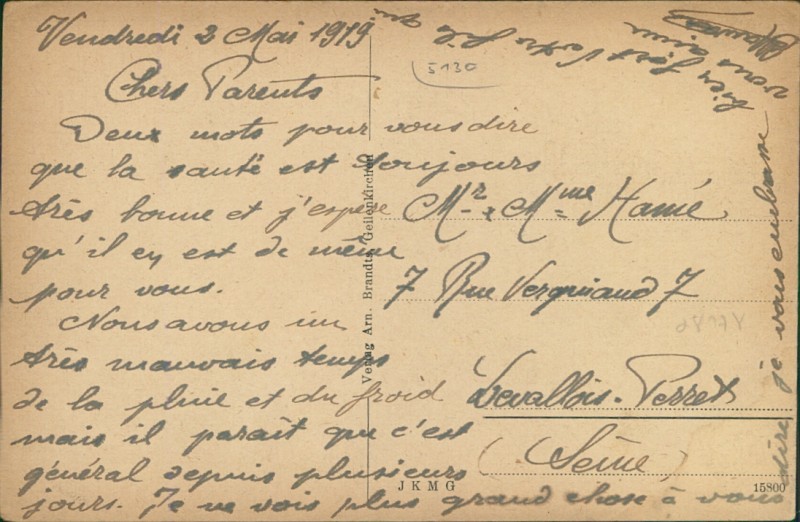 Vendredi 2 Mai 1919
Chers Parents
Deux mots pour vous dire
que la santé est toujours
très bonne et j'espère
qu'il en est de même
pour vous.
Nous avons un
très mauvais temps
de la pluie et du froid
mais il paraît que c'est
général depuis plusieurs
jours. Je ne vois plus grand chose à vous
dire, je vous embrasse
bien fort Votre fils
qui vous aime
5130
Mr & Mme Hamé
7 Rue Vergniaud 7
Levallois-Perret
(Seine)
Verlag Arn. Brandts, Geilenkirchen
J K M G
15800